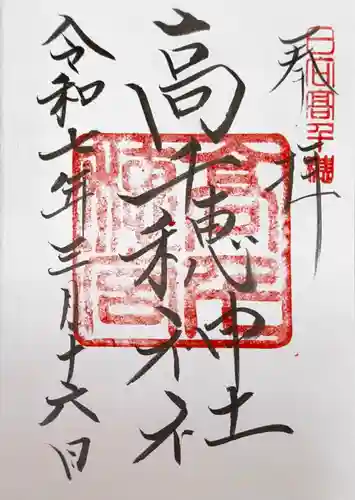 奉拝
日向高千穂
高千穂神社
令和七年三月十六日